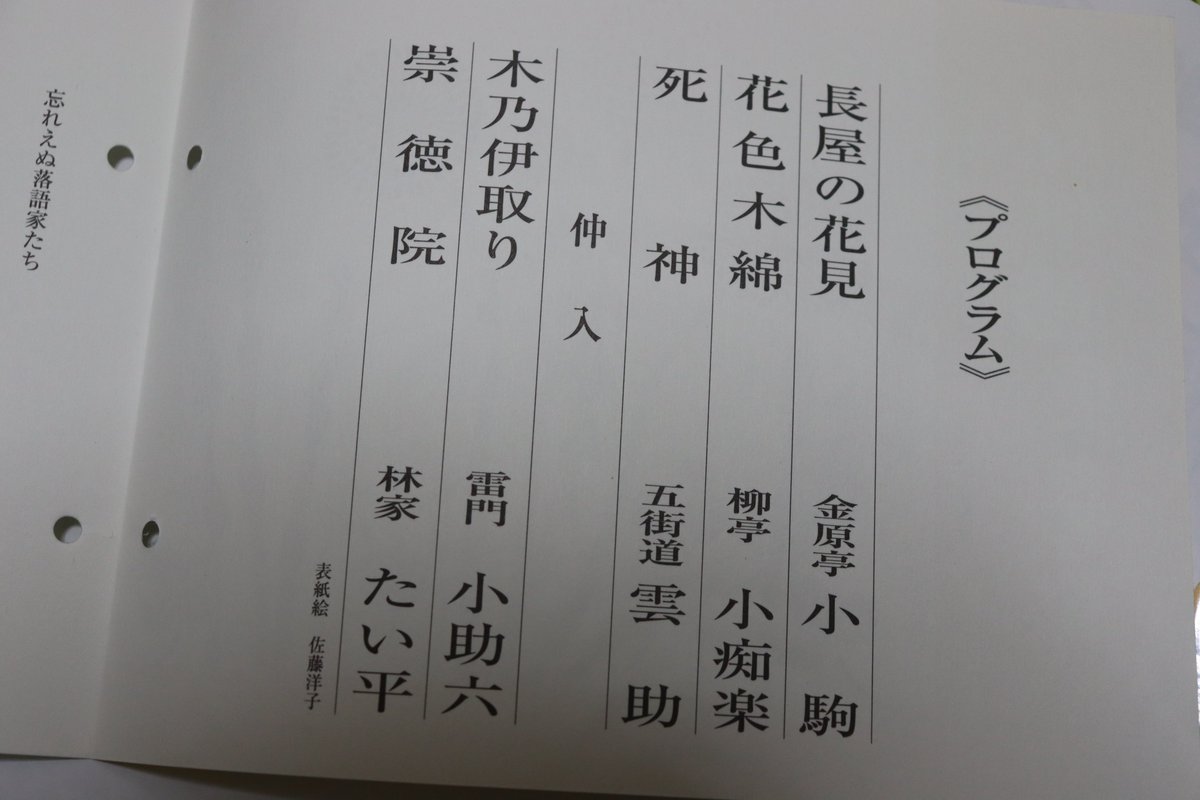 《プログラム》
長屋の花見 金原亭 小駒
花色木綿 柳亭 小痴楽
死神 五街道 雲助
仲入
木乃伊取り 雷門 小助六
崇徳院 林家 たい平
表紙絵 佐藤洋子
忘れえぬ落語家たち